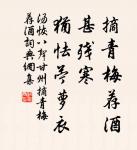 摘青梅荐酒
甚残寒
猶怯苎萝衣
汤恢八聲甘州摘青梅
荐酒詞典網集